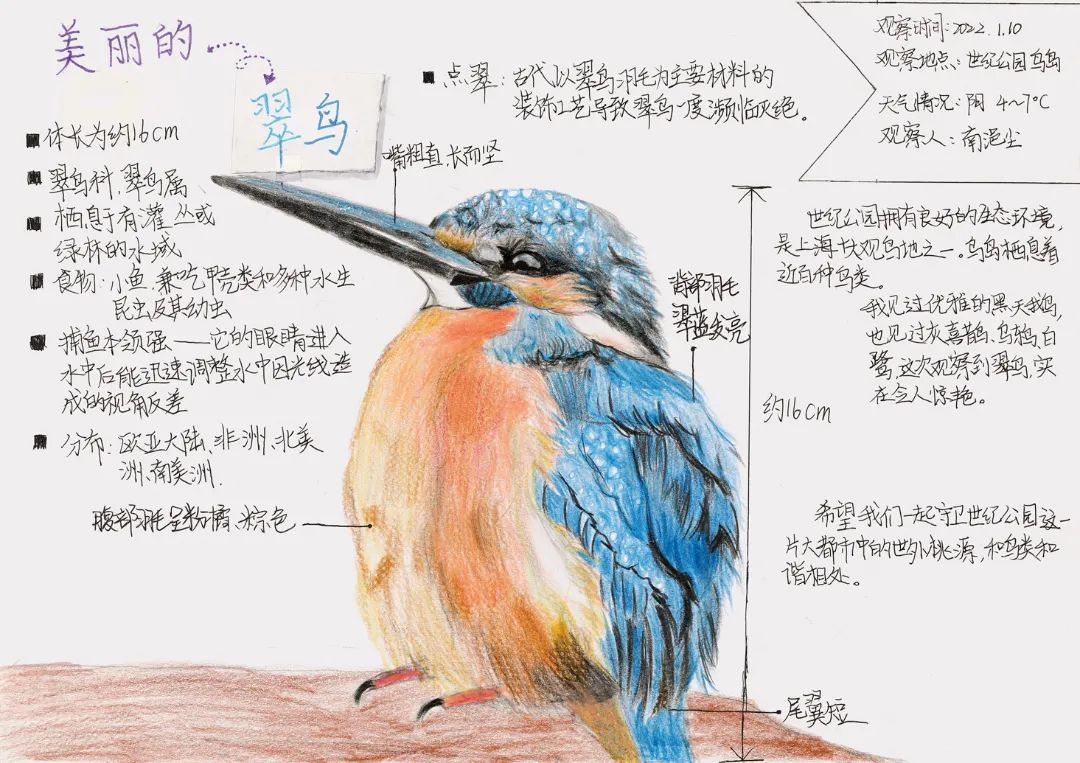 美丽的
翠鸟
体长为约16cm
翠鸟科、翠鸟属
栖息于有灌丛或
绿林的水域
食物：小鱼,兼吃甲壳类和多种水生
昆虫及其幼虫
捕鱼本领强——它的眼睛进入
水中后能迅速调整水中因光线造
成的视角反差
分布：欧亚大陆、非洲、北美
洲、南美洲.
腹部羽毛呈粉橘、棕色
点翠：古代以翠鸟羽毛为主要材料的
装饰工艺导致翠鸟一度濒临灭绝。
嘴粗直,长而坚
背部羽毛
翠蓝发亮
约16cm
尾翼短
观察时间：2022.1.10
观察地点：世纪公园鸟岛
天气情况：阴 4~7°C
观察人：南浥尘
世纪公园拥有良好的生态环境,
是上海十大观鸟地之一。鸟岛栖息着
近百种鸟类。
我见过优雅的黑天鹅,
也见过灰喜鹊、乌鸫、白
鹭,这次观察到翠鸟,实
在令人惊艳。
希望我们一起守卫世纪公园这一
片大都市中的世外桃源,和鸟类和
谐相处。